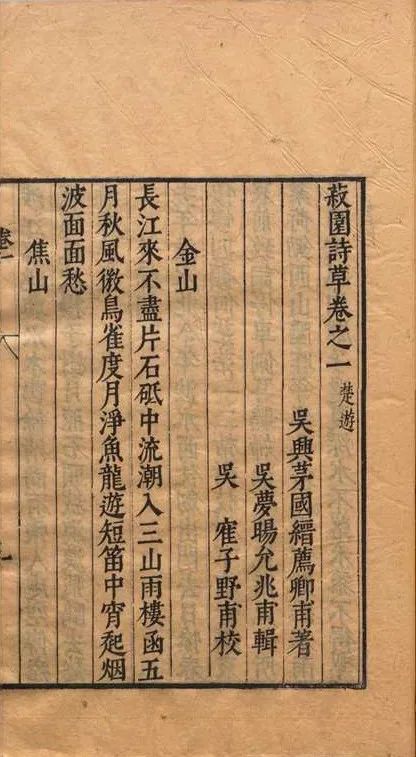 菽園詩草卷之一 楚遊
吳興茅國縉薦卿甫著
吳夢暘允兆甫輯
吳 寉子野甫校
金山
長江來不盡片石砥中流潮入三山雨樓函五
月秋風微鳥雀度月淨魚龍遊短笛中宵起烟
波面面愁
焦山
卷一